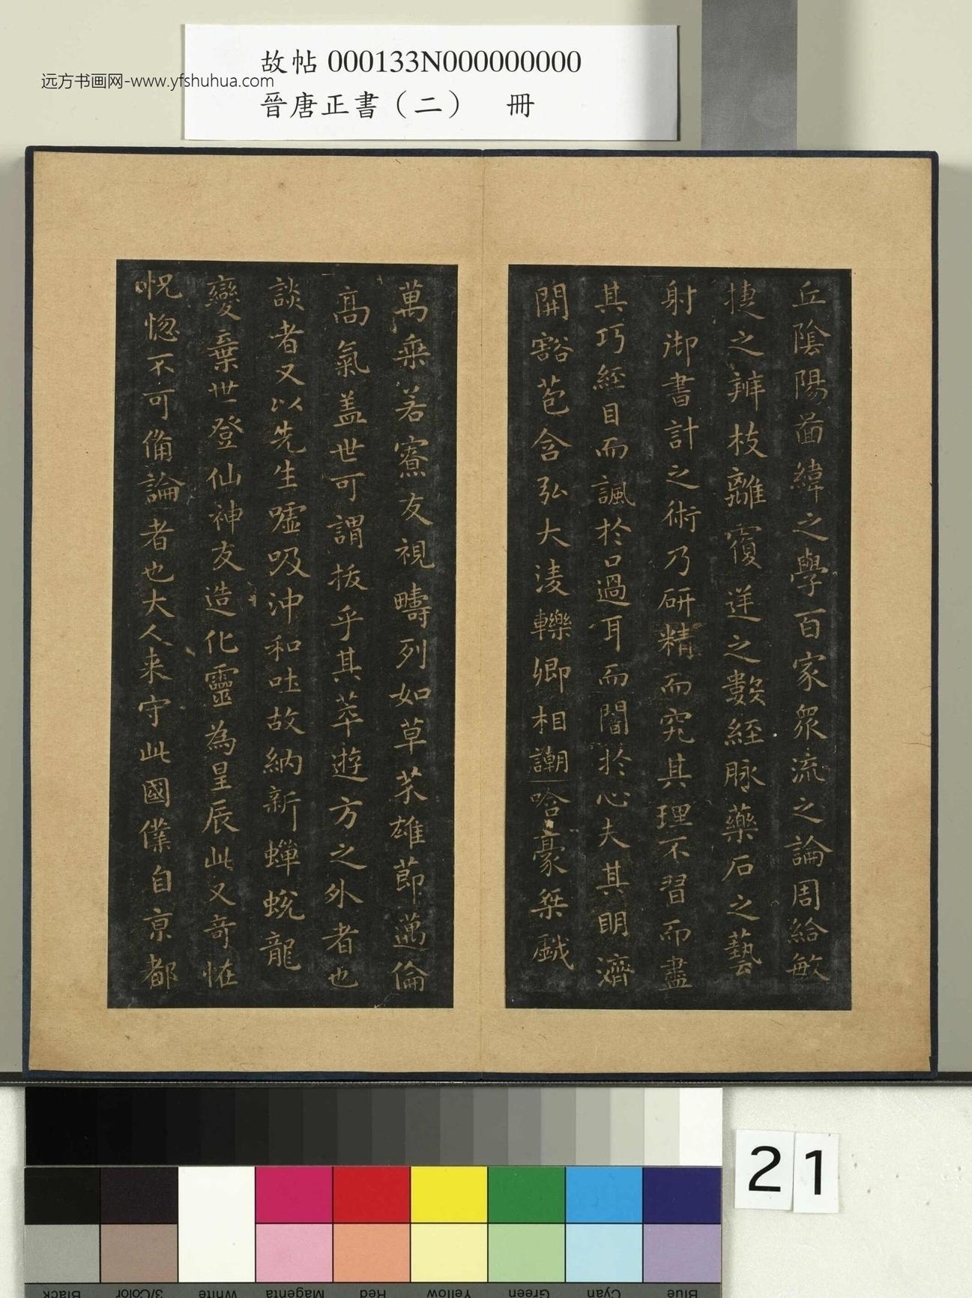 故帖 000133N000000000
远方书画网-www.yfshuhua.com
晉唐正書（二） 冊
丘陰陽啚緯之學百家衆流之論周給敏
捷之辨枝離覆逆之數經脉藥石之藝
射御書計之術乃研精而究其理不習而盡
其巧經目而諷於口過耳而闇於心夫其明濟
開豁苞含弘大淩轢卿相謿哈豪桀戲
萬乘若寮友視疇列如草芥雄莭邁倫
高氣盖世可謂拔乎其萃遊方之外者也
談者又以先生噓吸沖和吐故納新蟬蛻龍
變棄世登仙神友造化靈為星辰此又奇恠
怳惚不可俻論者也大人来守此國僕自京都
21
Black
3/Color
White
Magenta
Red
Yellow
Green
Cyan
Blue